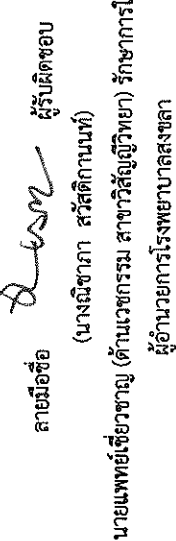 ลายมือชื่อ ผู้รับผิดชอบ
(นางณิชาภา สวัสดิกานนท์)
นายแพทย์เชี่ยวชาญ (ด้านเวชกรรม สาขาวิสัญญีวิทยา) รักษาการใ
ผู้อำนวยการโรงพยาบาลสงขลา